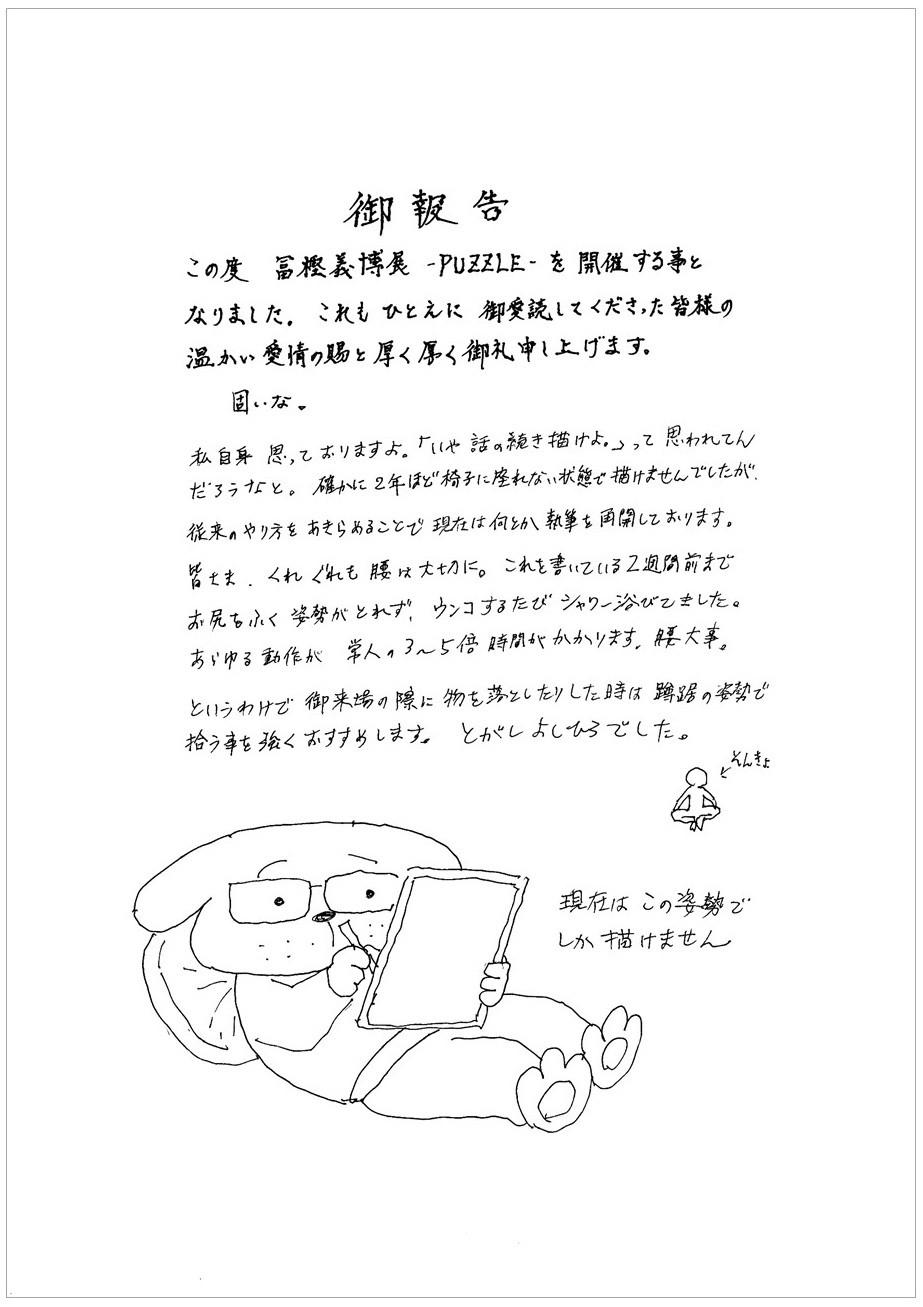 御報告
この度 冨樫義博展 -PUZZLE- を 開催する事と
なりました。これも ひとえに 御愛読してくださった皆様の
温かい愛情の賜と厚く厚く御礼申し上げます。
固いな。
私自身 思っておりますよ。「いや 話の続き描けよ。」って 思われてん
だろうなと。確かに2年ほど椅子に座れない状態で描けませんでしたが、
従来のやり方を あきらめることで 現在は何とか執筆を再開しております。
皆さま、くれぐれも 腰は大切に。これを書いている2週間前まで
お尻をふく 姿勢がとれず、ウンコするたび シャワー浴びてました。
あらゆる動作が 常人の3〜5倍 時間がかかります。腰大事。
というわけで 御来場の際に 物を落としたりした時は 蹲踞の姿勢で
拾う事を強くおすすめします。とがし よしひろ でした。
←そんきょ
現在は この姿勢で
しか 描けません